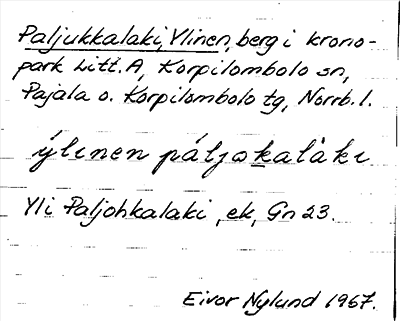 Paljukkalaki, Ylinen, berg i krono-
park Litt. A, Korpilombolo sn,
Pajala o. Korpilombolo tg, Norrb. l.
ýlinen páljokalàki
Yli Paljohkalaki, ek, Gn 23.
Eivor Nylund 1967.